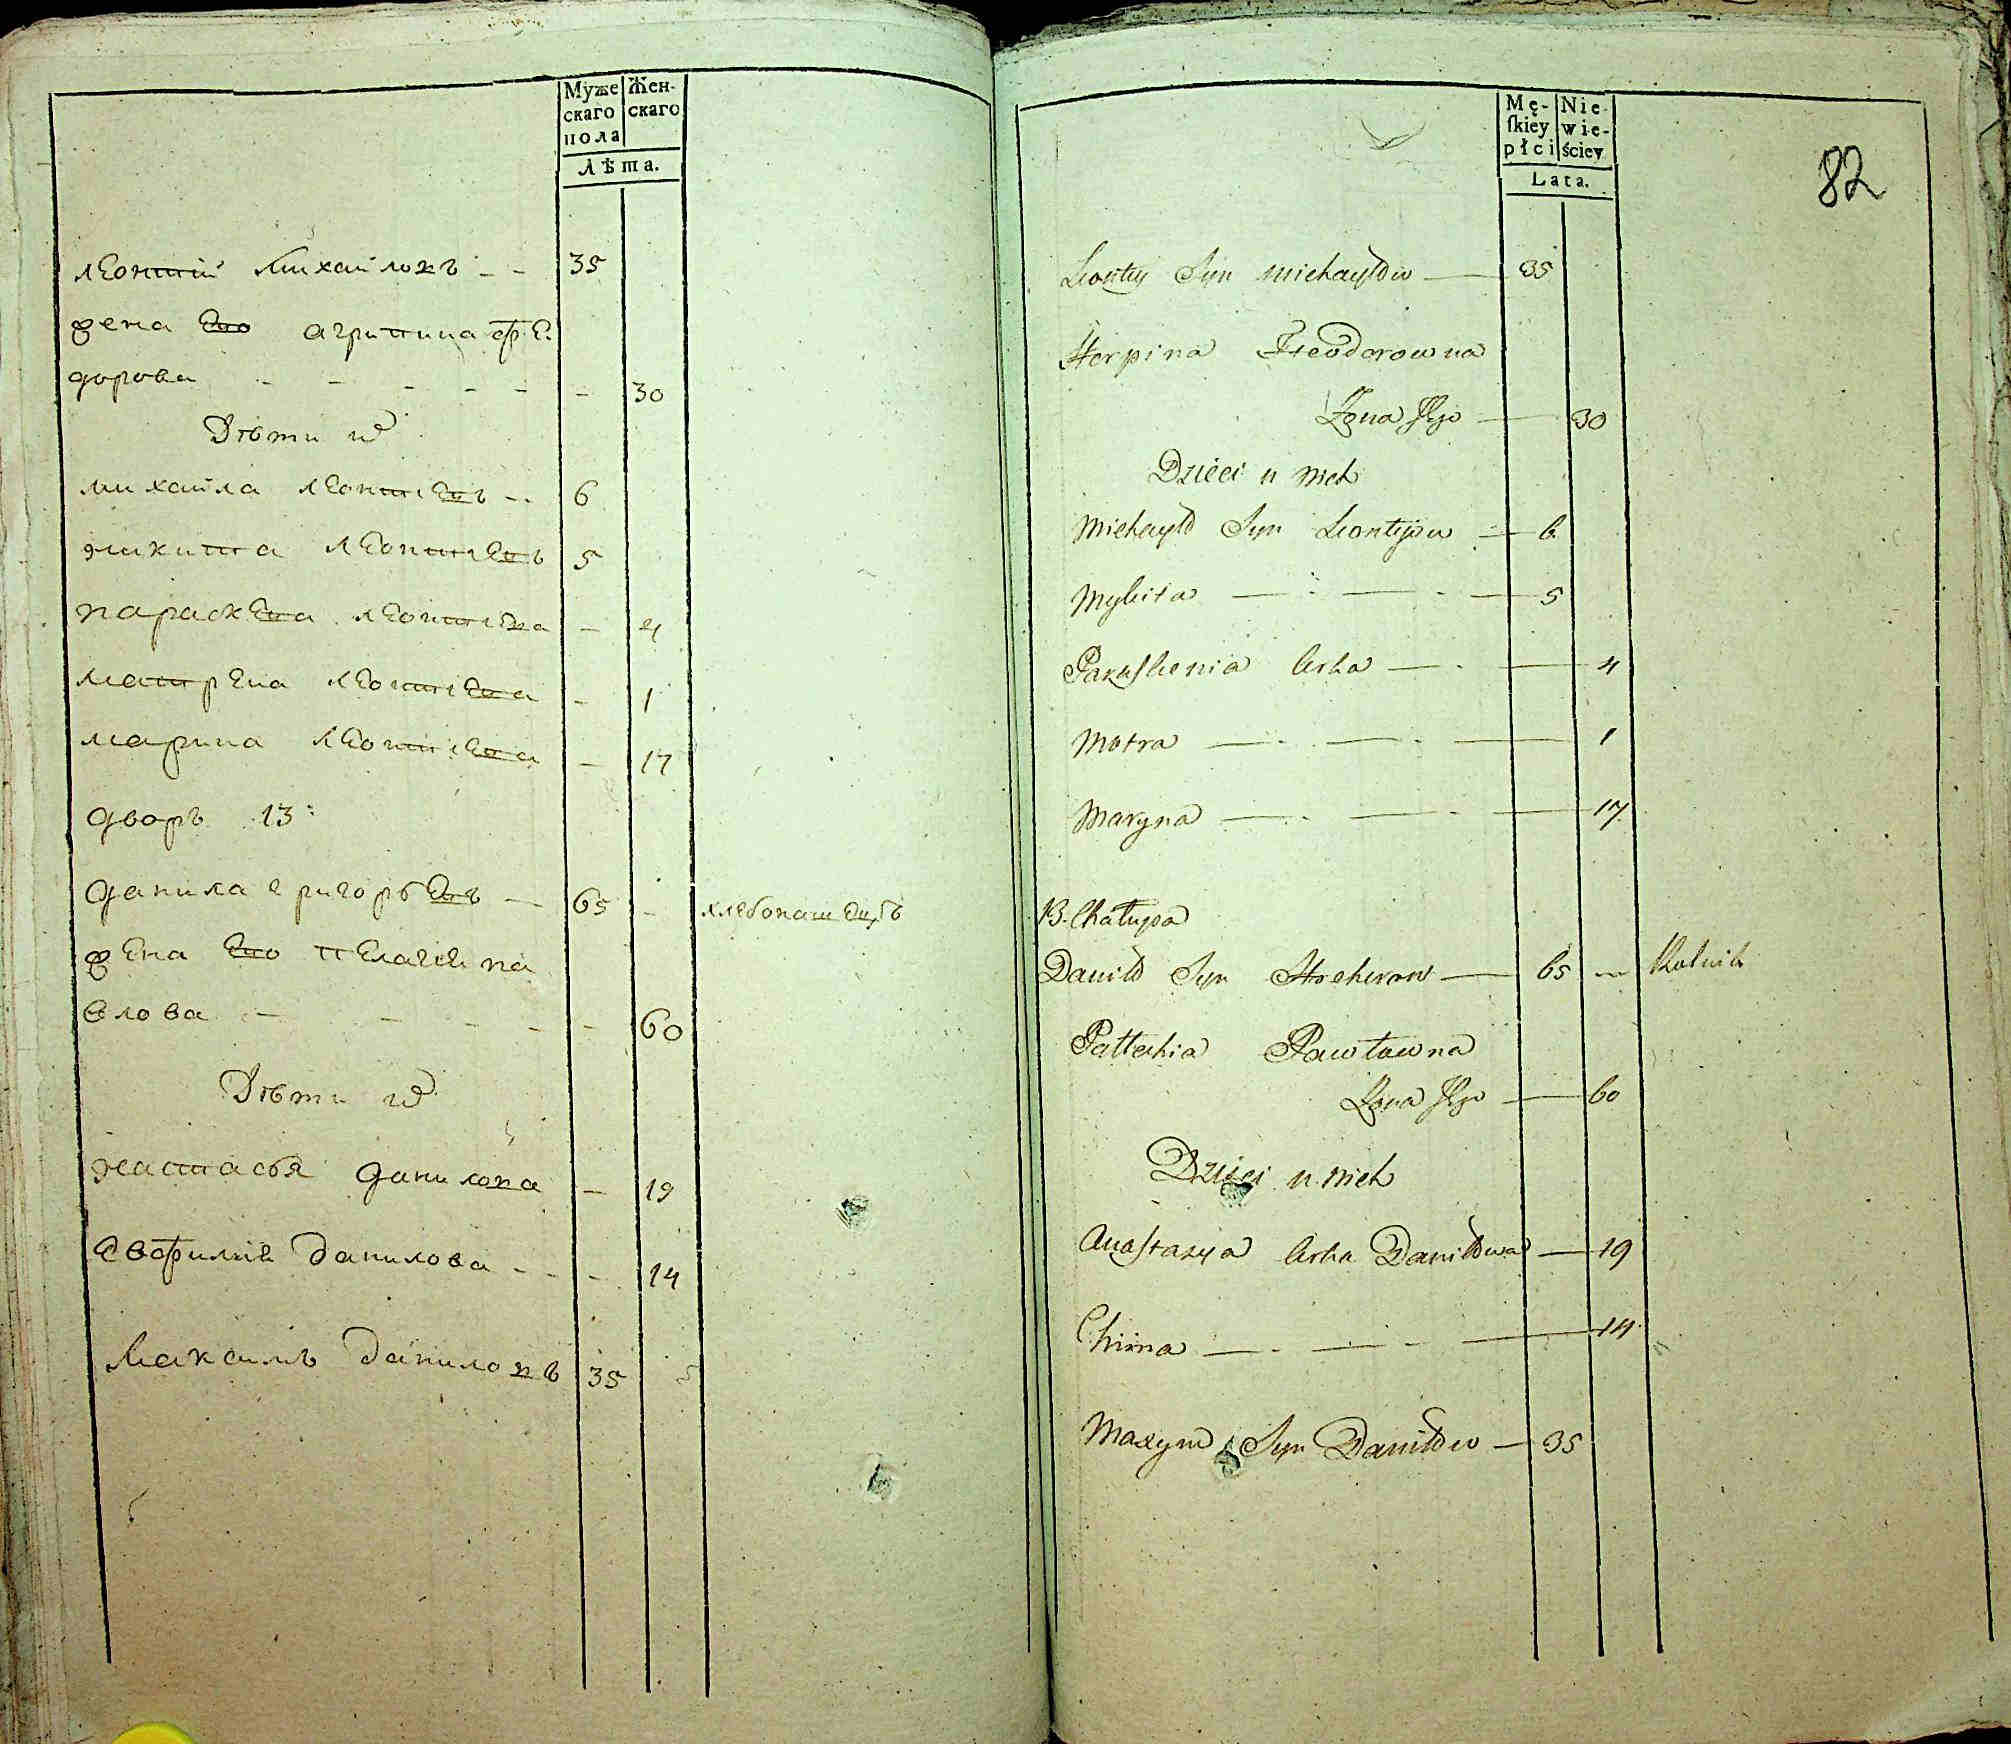 Муже
скаго
пола
Жен-
скаго
Лѣта.
леонтий михайловъ - - 35
жена Ево агрипина фе.
дорова - - - - - - 30
Дѣти их
михайла леонтиевъ - - 6
никита леонтиевъ 5
параскева леонтиева - 4
матрена леонтиева - 1
марина леонтиева - 17
дворъ 13:
данила григорьевъ - 65 - хлебопашецъ
жена Ево пелагея па
влова - - - - - 60
Дѣти их
настасья данилова - 19
евфимия данилова - - - 14
максимъ даниловъ 35
Mę-
skiey
płci
Nie-
wie-
ściey
Lata.
82
Leontiy Syn Michayłow — 35
Horpina Fteodorowna
Żona Jego — 30
Dzieci u nich
Michayło Syn Leontijow — 6
Mykita — . — . — 5
Paraskienia Curka — . — 4
Motra — . — . — 1
Maryna — . — . — 17
13. Chałupa
Daniło Syn Hrehorow — 65 — Rolnik
Pallachia Pawłowna
Żona Jego — 60
Dzieci u nich
Anastazya Curka Daniłowa — 19
Chima — . — . — 14
Maxym Syn Daniłow — 35